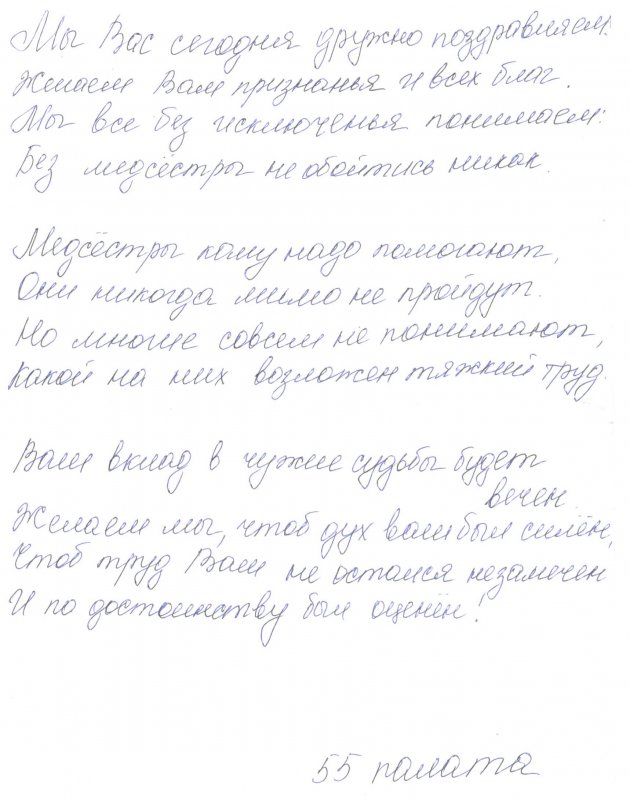 Мы Вас сегодня дружно поздравляем:
Желаем Вам признанья и всех благ.
Мы все без исключенья понимаем:
Без медсёстры не обойтись никак.
Медсёстры кому надо помогают,
Они никогда мимо не пройдут.
Но многие совсем не понимают,
Какой на них возложен тяжкий труд.
Ваш вклад в чужие судьбы будет
вечен.
Желаем мы, чтоб дух ваш был силён,
Чтоб труд Ваш не остался незамечен
И по достоинству был оценён!
55 палата